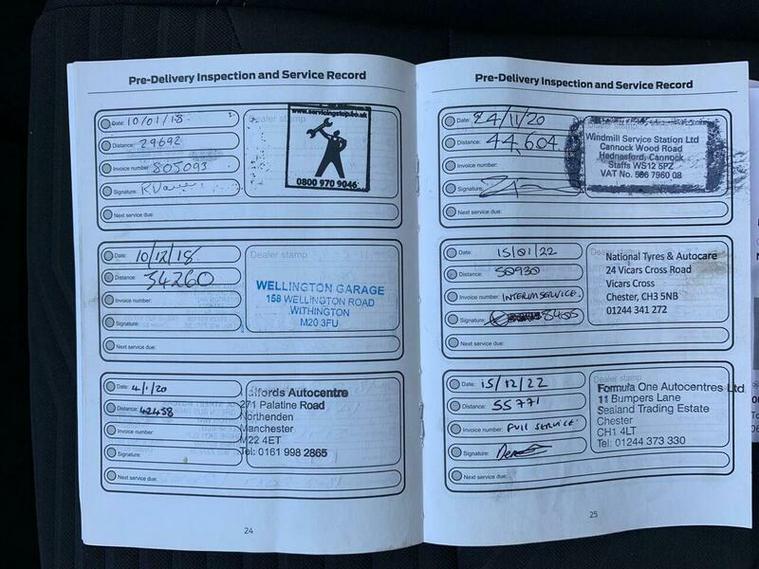 Pre-Delivery Inspection and Service Record
Date: 10/01/18
Distance: 29692
Invoice number: 805093
Signature:
Next service due:
Dealer stamp
www.servicingstop.co.uk
0800 970 9046
Date: 10/12/18
Distance: 34260
Invoice number:
Signature:
Next service due:
Dealer stamp
WELLINGTON GARAGE
158 WELLINGTON ROAD
WITHINGTON
M20 3FU
Date: 4/1/20
Distance: 42458
Invoice number:
Signature:
Next service due:
Autocentre
271 Palatine Road
Northenden
Manchester
M22 4ET
Tel: 0161 998 2865
24
Pre-Delivery Inspection and Service Record
Date: 24/11/20
Distance: 44,604
Invoice number:
Signature:
Next service due:
Windmill Service Station Ltd
Cannock Wood Road
Hednesford, Cannock
Staffs WS12 5PZ
VAT No. 566 7960 08
Date: 15/01/22
Distance: 50930
Invoice number: INTERIM SERVICE.
Signature: 8405
Next service due:
National Tyres & Autocare
24 Vicars Cross Road
Vicars Cross
Chester, CH3 5NB
01244 341 272
Date: 15/12/22
Distance: 55771
Invoice number: FULL SERVICE
Signature:
Next service due:
Formula One Autocentres Ltd
11 Bumpers Lane
Sealand Trading Estate
Chester
CH1 4LT
Tel: 01244 373 330
25